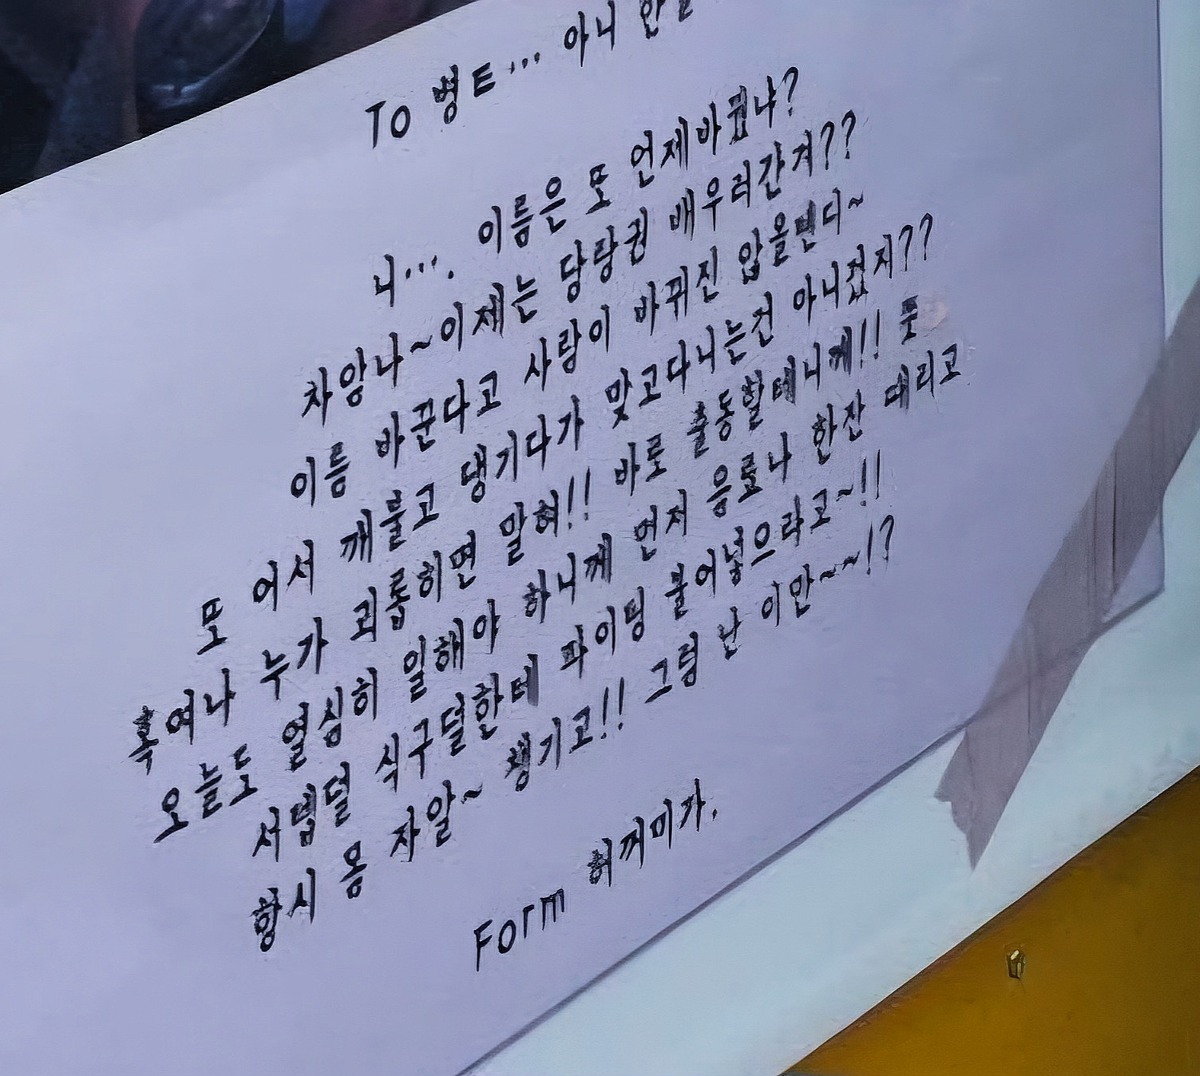 To 병ㅌ... 아니
니.... 이름은 또 언제바꿨냐?
차암나~이제는 당랑권 배우러간겨??
이름 바꾼다고 사람이 바뀌진 않을텐디~
또 어서 깨불고 댕기다가 맞고다니는건 아니겄지??
혹여나 누가 괴롭히면 말혀!! 바로 출동할테니께!! 풋
오늘도 열심히 일해야 하니께 먼저 음료나 한잔 때리고
서텝덜 식구덜한테 파이팅 불어넣으라고~!!
항시 몸 자알~ 챙기고!! 그럼 난 이만~~!?
Form 허꺼미가.